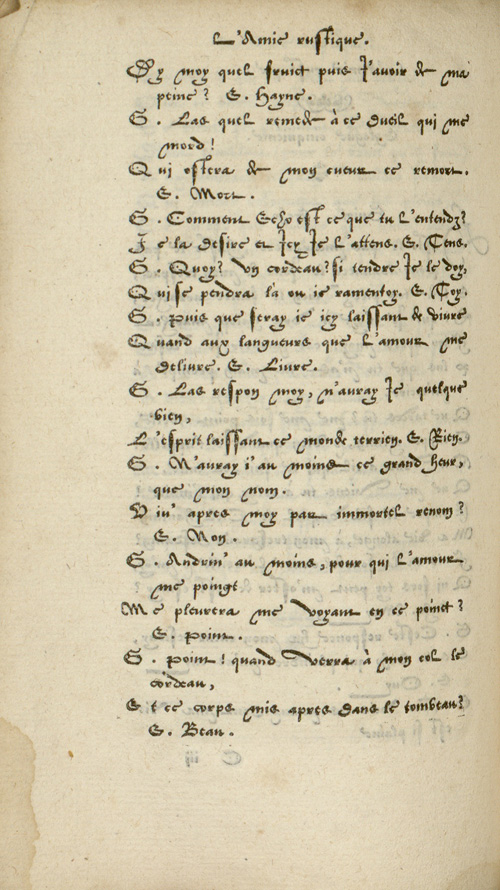 L'Amie rustique.
Dy moy quel fruict puis J'avoir de ma
peine ? E. Hayne.
G. Las quel remede à ce dueil qui me
mord !
Qui ostera de mon cueur ce remort.
E. Mort.
G. Comment Echo est ce que tu l'entendz?
Je la desire et Icy Je l'attens. E. Tens.
G. Quoy? Un cordeau? si tendre Je le doy,
Qui se pendra là ou ie ramentoy. E. Toy.
G. puis que seray ie icy laissant de vivre
Quand aux langueurs que L'amour me
delivre. E. Livre.
G. Las respon moy, n'auray Je quelque
bien,
L'esprit laissant ce monde terrien. E. Rien.
G. N'auray i'au moins ce grand heur,
que mon nom.
Viv' apres moy par immortel renom ?
E. Non.
G. Andrin' au moins, pour qui L'amour
me poingt
Me pleurera me voyant en ce poinct ?
E. point.
G. point ! quand verra à mon col le
cordeau,
Et ce corps mis apres dans le tombeau?
E. Beau.